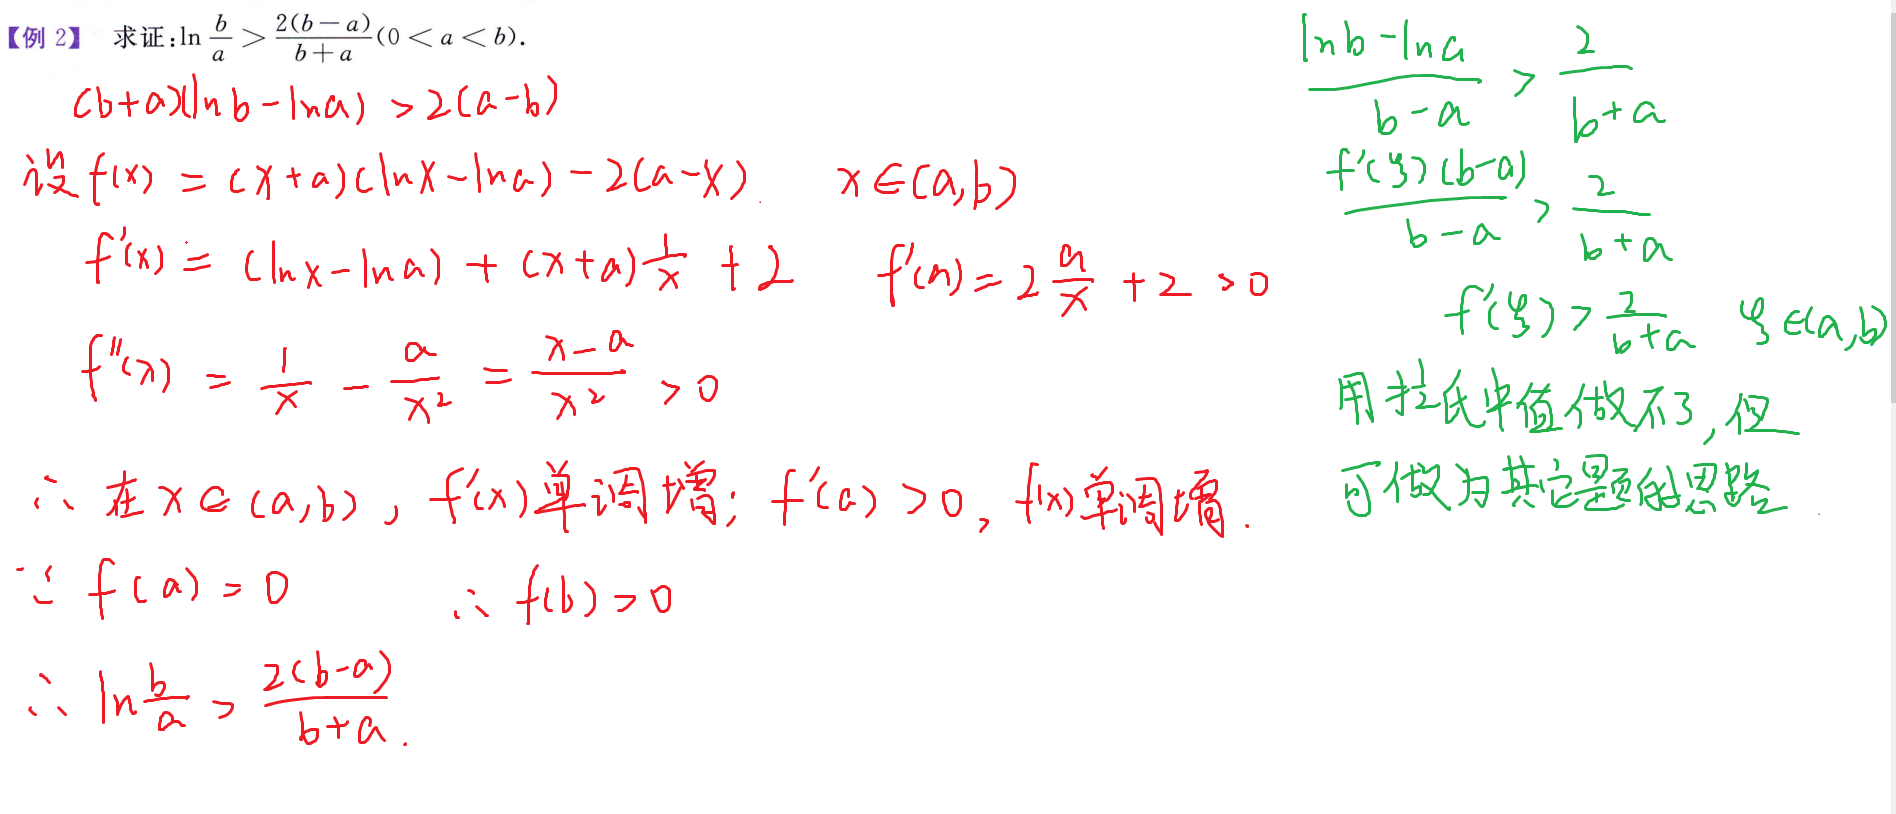 【例 2】 求证:ln b/a > 2(b-a)/(b+a) (0<a<b).
(b+a)(ln b - ln a) > 2(a-b)
设 f(x) = (x+a)(ln x - ln a) - 2(a-x) x∈(a,b)
f'(x) = (ln x - ln a) + (x+a) 1/x + 2 f'(a) = 2 a/x + 2 > 0
f''(x) = 1/x - a/x² = (x-a)/x² > 0
∴ 在 x∈(a,b), f'(x)单调增; f'(a) > 0, f(x)单调增.
∵ f(a) = 0 ∴ f(b) > 0
∴ ln b/a > 2(b-a)/(b+a).
(ln b - ln a)/(b-a) > 2/(b+a)
f'(ξ)(b-a)/(b-a) > 2/(b+a)
f'(ξ) > 2/(b+a) ξ∈(a,b)
用拉氏中值做不了, 但
可做为其它题的思路.